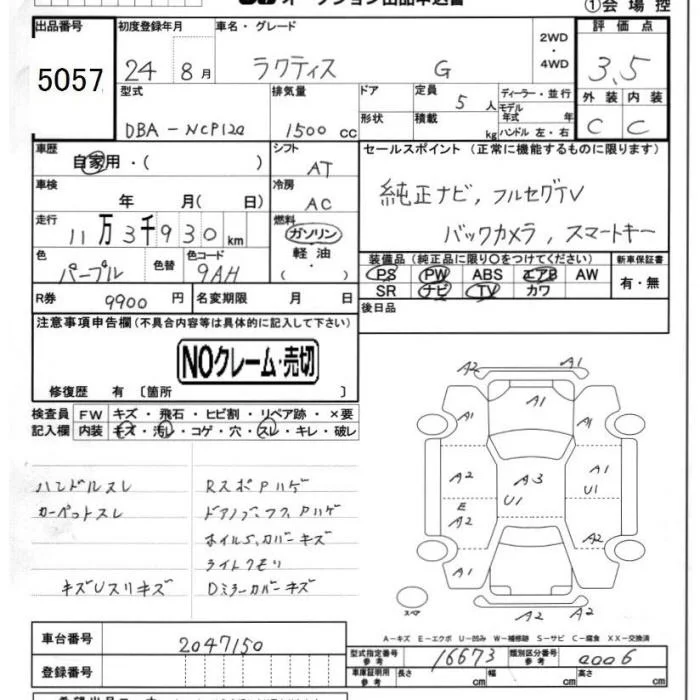 オークション出品申込書
①会場控
出品番号 初度登録年月 車名・グレード 2WD・4WD 評価点
5057 24 8月 ラクティス G 3.5
型式 排気量 ドア 定員 5人 ディーラー・並行 外装 内装
DBA-NCP120 1500cc 形状 積載 kg モデル年式 年 ハンドル 左・右 C C
車歴 シフト セールスポイント (正常に機能するものに限ります)
自家用・( ) AT
車検 冷房 純正ナビ, フルセグTV
年 月( 日) AC
走行 燃料 バックカメラ, スマートキー
11万3千930km ガソリン
軽油
・( )
色 色替 色コード 装備品 (純正品に限り○をつけてください) 新車保証書
パープル 9AH PS PW ABS エアB AW 有・無
SR ナビ TV カワ
R券 9900円 名変期限 月 日 後日品
注意事項申告欄 (不具合内容等は具体的に記入して下さい)
NOクレーム・売切
修復歴 有 〔箇所 〕
検査員 FW キズ・飛石・ヒビ割・リペア跡・×要
記入欄 内装 キズ・汚レ・コゲ・穴・スレ・キレ・破レ
A2 A1
A1
A1 A1
A2 A3 A1
U1 U1
E
A2 A2
A1
A2 A2
ハンドルスレ RスポPハゲ
カーペットスレ ドアノブ、フク、Pハゲ
ホイルS、カバーキズ
ライトクモリ
キズUスリキズ Dミラーカバーキズ
スペア
A-キズ E-エクボ U-凹み W-補修跡 S-サビ C-腐食 XX-交換済
車台番号 2047150
型式指定番号 参考 16673 類別区分番号 参考 0006
登録番号 車庫証明用 参考 長さ cm 幅 cm 高さ cm